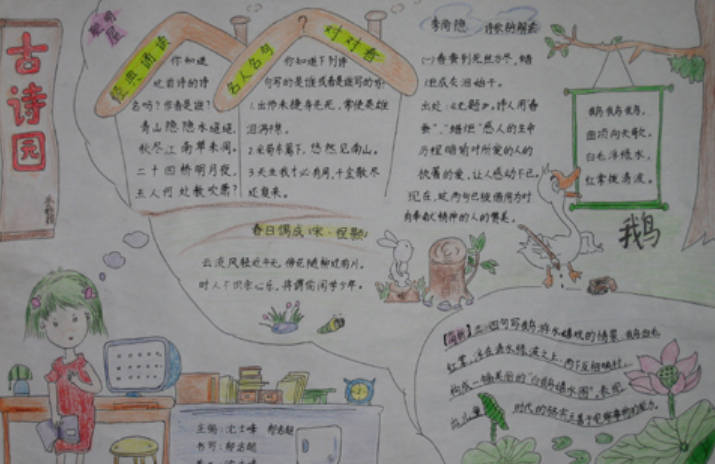 古诗园
经典诵读
你知道
这首诗的诗
名吗？作者是谁？
青山隐隐水迢迢，
秋尽江南草未凋。
二十四桥明月夜，
玉人何处教吹箫？
名人名句
？
对对看
你知道下列诗
句写的是谁或者是谁写的吗？
1.出师未捷身先死，常使英雄
泪满襟。
2.采菊东篱下，悠然见南山。
3.天生我才必有用，千金散尽
还复来。
李商隐
诗歌的解读
㈠春蚕到死丝方尽，蜡
炬成灰泪始干。
出处：《无题》。诗人用"春
蚕"、"蜡炬"感人的生命
历程暗喻对所爱的人的
执着的爱，让人感动不已。
现在，这两句已被借用为对
有奉献精神的人的赞美。
鹅鹅鹅，
曲项向天歌。
白毛浮绿水，
红掌拨清波。
鹅
春日偶成（宋·程颢）
云淡风轻近午天，傍花随柳过前川。
时人不识余心乐，将谓偷闲学少年。
【简析】二、四句写鹅游水嬉戏的情景：鹅白毛
红掌，浮在清水绿波之上，两下互相映衬，
构成一幅美丽的"白鹅嬉水图"，表现
出儿童
时代的骆宾王善于观察事物的能力。
主编：
书写：